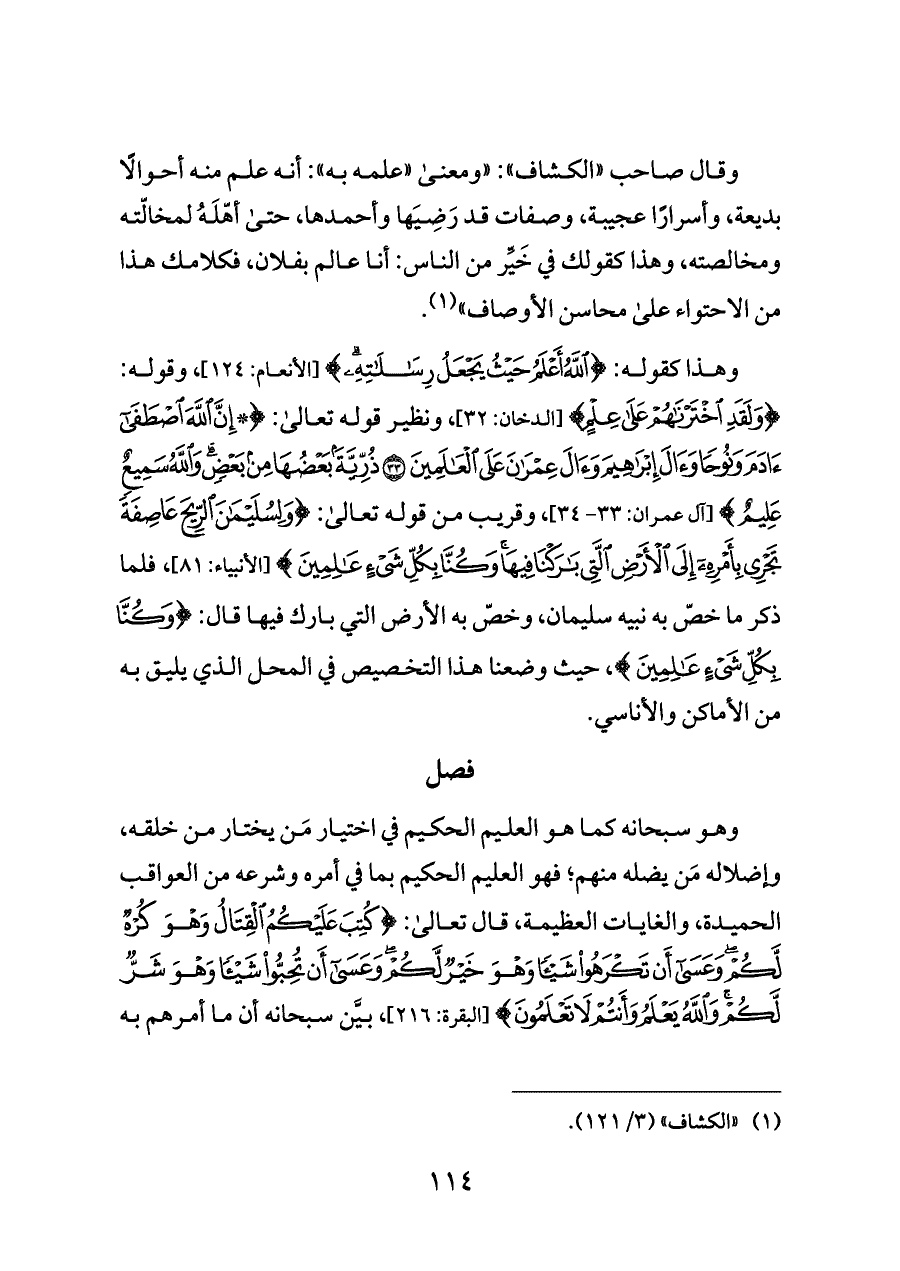 وقال صاحب «الكشاف»: «ومعنىٰ «علمه به»: أنه علم منه أحوالًا
بديعة، وأسرارًا عجيبة، وصفات قد رَضِيَها وأحمدها، حتىٰ أهّلَهُ لمخالّته
ومخالصته، وهذا كقولك في خَيِّر من الناس: أنا عالم بفلان، فكلامك هذا
من الاحتواء علىٰ محاسن الأوصاف»(١).
وهذا كقوله: ﴿ٱللَّهُ أَعْلَمُ حَيْثُ يَجْعَلُ رِسَالَاتِهِۦ ۗ﴾ [الأنعام: ١٢٤]، وقوله:
﴿وَلَقَدِ ٱخْتَرْنَٰهُمْ عَلَىٰ عِلْمٍ﴾ [الدخان: ٣٢]، ونظير قوله تعالىٰ: ﴿* إِنَّ ٱللَّهَ ٱصْطَفَىٰٓ
ءَادَمَ وَنُوحًا وَءَالَ إِبْرَٰهِيمَ وَءَالَ عِمْرَٰنَ عَلَى ٱلْعَٰلَمِينَ ٣٣ ذُرِّيَّةًۢ بَعْضُهَا مِنۢ بَعْضٍ ۗ وَٱللَّهُ سَمِيعٌ
عَلِيمٌ﴾ [آل عمران: ٣٣- ٣٤]، وقريب من قوله تعالىٰ: ﴿وَلِسُلَيْمَٰنَ ٱلرِّيحَ عَاصِفَةً
تَجْرِي بِأَمْرِهِۦٓ إِلَى ٱلْأَرْضِ ٱلَّتِي بَٰرَكْنَا فِيهَا ۚ وَكُنَّا بِكُلِّ شَيْءٍ عَٰلِمِينَ﴾ [الأنبياء: ٨١]، فلما
ذكر ما خصّ به نبيه سليمان، وخصّ به الأرض التي بارك فيها قال: ﴿وَكُنَّا
بِكُلِّ شَيْءٍ عَٰلِمِينَ﴾، حيث وضعنا هذا التخصيص في المحل الذي يليق به
من الأماكن والأناسي.
فصل
وهو سبحانه كما هو العليم الحكيم في اختيار مَن يختار من خلقه،
وإضلاله مَن يضله منهم؛ فهو العليم الحكيم بما في أمره وشرعه من العواقب
الحميدة، والغايات العظيمة، قال تعالىٰ: ﴿كُتِبَ عَلَيْكُمُ ٱلْقِتَالُ وَهُوَ كُرْهٌ
لَّكُمْ ۖ وَعَسَىٰٓ أَن تَكْرَهُوا۟ شَيْـًٔا وَهُوَ خَيْرٌ لَّكُمْ ۖ وَعَسَىٰٓ أَن تُحِبُّوا۟ شَيْـًٔا وَهُوَ شَرٌّ
لَّكُمْ ۗ وَٱللَّهُ يَعْلَمُ وَأَنتُمْ لَا تَعْلَمُونَ﴾ [البقرة: ٢١٦]، بيَّن سبحانه أن ما أمرهم به
(١) «الكشاف» (٣/ ١٢١).
١١٤